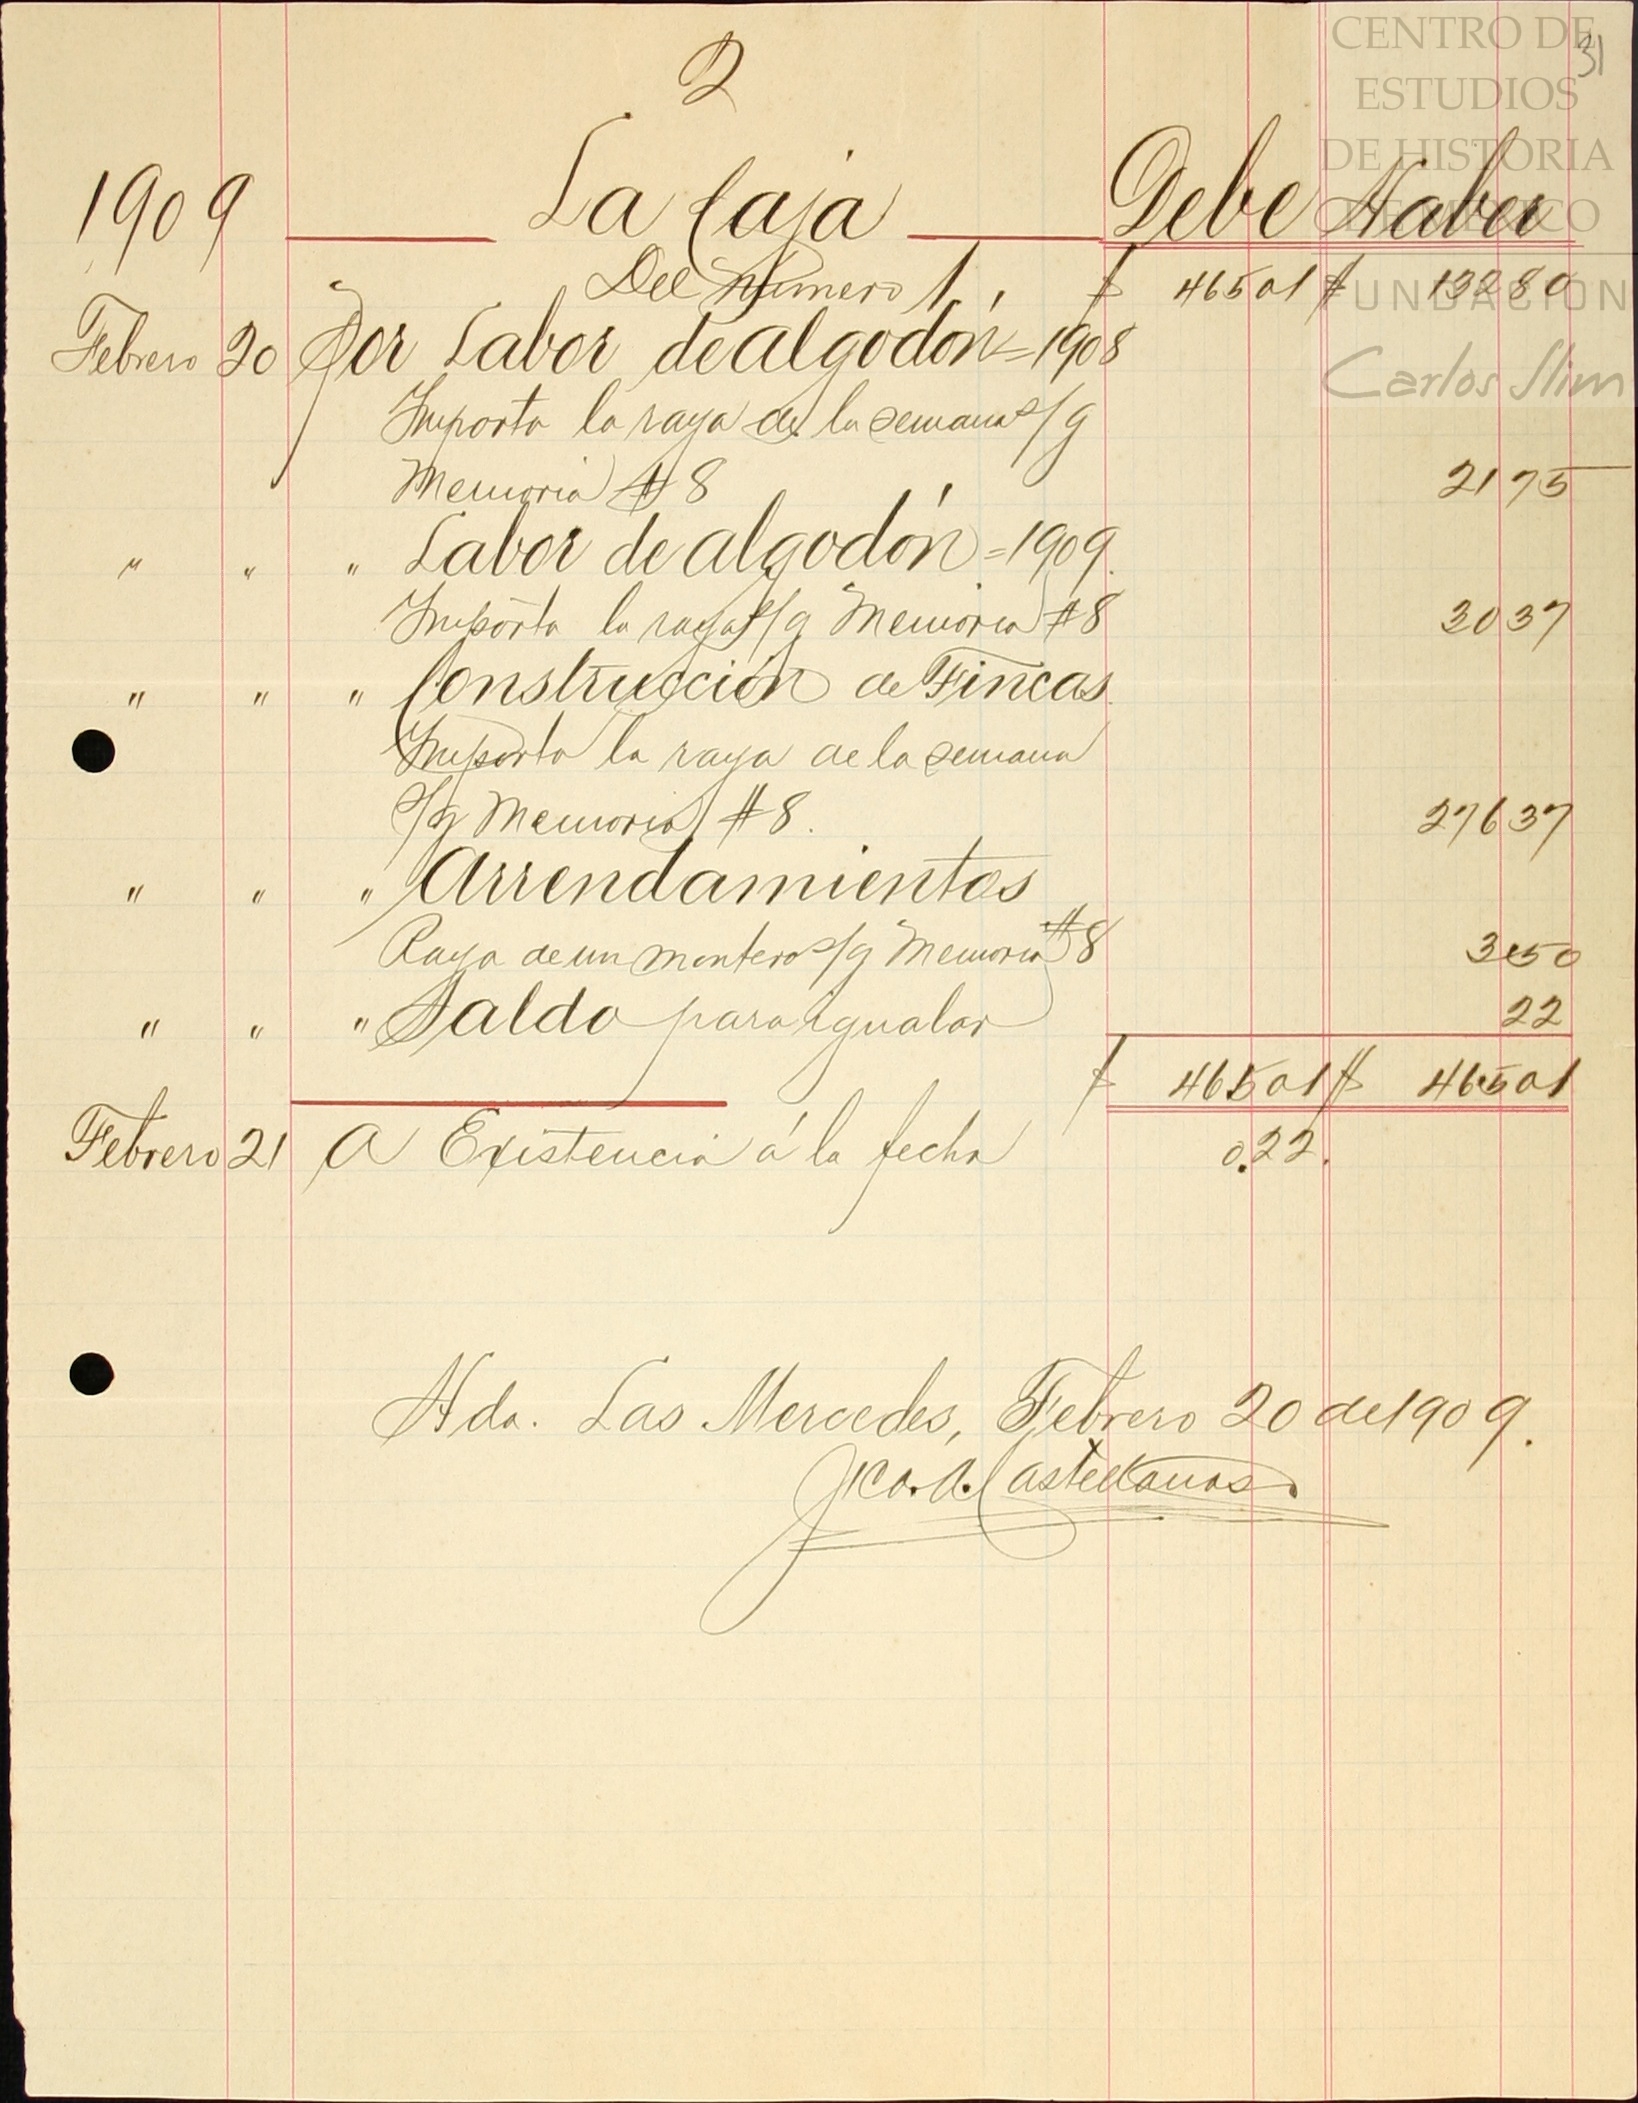 2
31
CENTRO DE
ESTUDIOS
DE HISTORIA
DE MÉXICO
FUNDACIÓN
Carlos Slim
1909 La Caja Debe Haber
Del Número 1, $ 465 01 $ 132 80
Febrero 20 Por Labor de algodón = 1908
Importa la raya de la semana s/g
Memoria #8 21 75
" " " Labor de algodón = 1909.
Importa la raya s/g Memoria #8 30 37
" " " Construcción de Fincas
Importa la raya de la semana
s/g Memoria #8. 276 37
" " " Arrendamientos
Raya de un montero s/g Memoria #8 3 50
" " " Saldo para igualar 22
$ 465 01 $ 465 01
Febrero 21 A Existencia á la fecha 0.22.
Hda. Las Mercedes, Febrero 20 de 1909.
Fco. A. Castellanos.